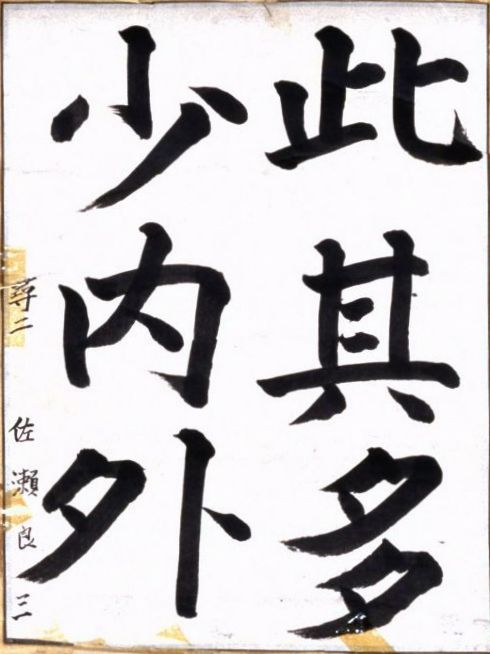 此其多
少内外
尋二 佐瀬良三